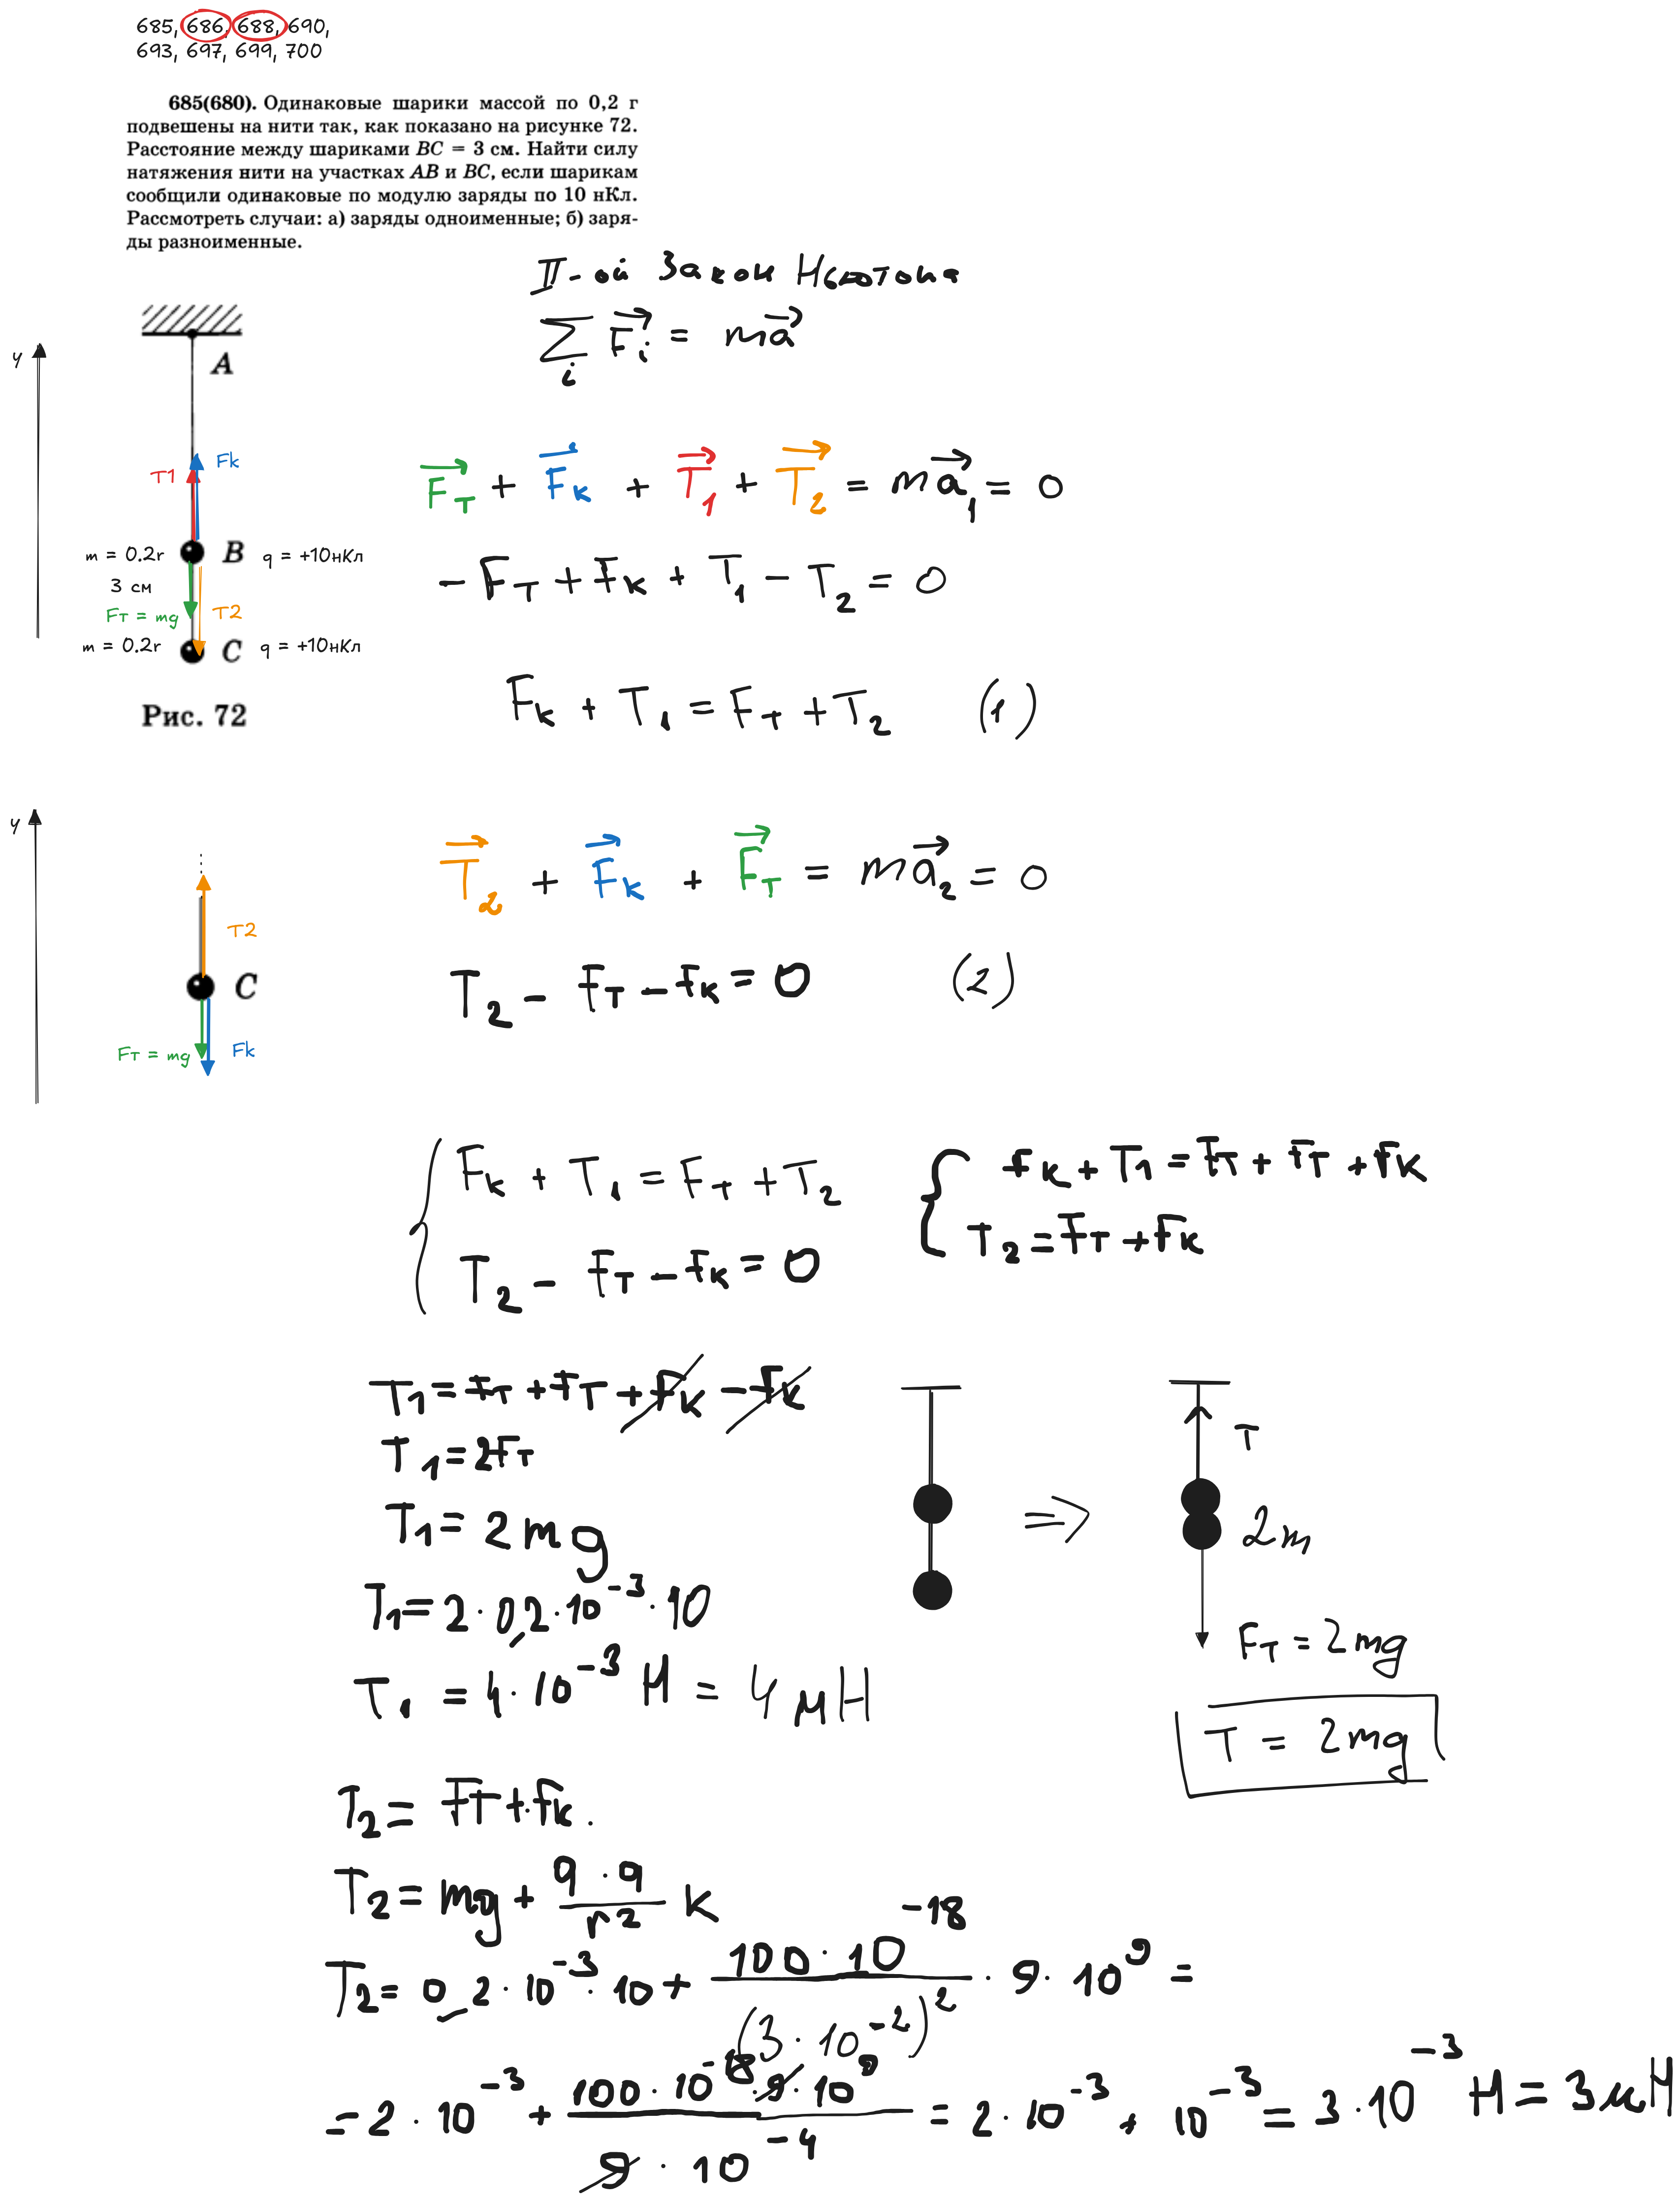 685, 686, 688, 690,
693, 697, 699, 700
685(680). Одинаковые шарики массой по 0,2 г
подвешены на нити так, как показано на рисунке 72.
Расстояние между шариками BC = 3 см. Найти силу
натяжения нити на участках AB и BC, если шарикам
сообщили одинаковые по модулю заряды по 10 нКл.
Рассмотреть случаи: а) заряды одноименные; б) заря-
ды разноименные.
II-ой Закон Ньютона
∑ᵢ F⃗ᵢ = ma⃗
y
A
T1 Fk
F⃗т + F⃗к + T⃗₁ + T⃗₂ = ma⃗₁ = 0
m = 0.2г B q = +10нКл
3 см
Fт = mg T2
m = 0.2г C q = +10нКл
Рис. 72
- Fт + Fк + T₁ - T₂ = 0
Fк + T₁ = Fт + T₂ (1)
y
T2
C
Fт = mg Fk
T⃗₂ + F⃗к + F⃗т = ma⃗₂ = 0
T₂ - Fт - Fк = 0 (2)
Fк + T₁ = Fт + T₂
T₂ - Fт - Fк = 0
Fк + T₁ = Fт + Fт + Fк
T₂ = Fт + Fк
T₁ = Fт + Fт + Fк - Fк
T₁ = 2Fт
T₁ = 2mg
T₁ = 2 · 0,2 · 10⁻³ · 10
T₁ = 4 · 10⁻³ Н = 4 мН
T
2m
Fт = 2mg
T = 2mg
T₂ = Fт + Fк.
T₂ = mg + q · q / r² k
T₂ = 0,2 · 10⁻³ · 10 + 100 · 10⁻¹⁸ / (3 · 10⁻²)² · 9 · 10⁹ =
= 2 · 10⁻³ + 100 · 10⁻¹⁸ · 9 · 10⁹ / 9 · 10⁻⁴ = 2 · 10⁻³ + 10⁻³ = 3 · 10⁻³ Н = 3 мН